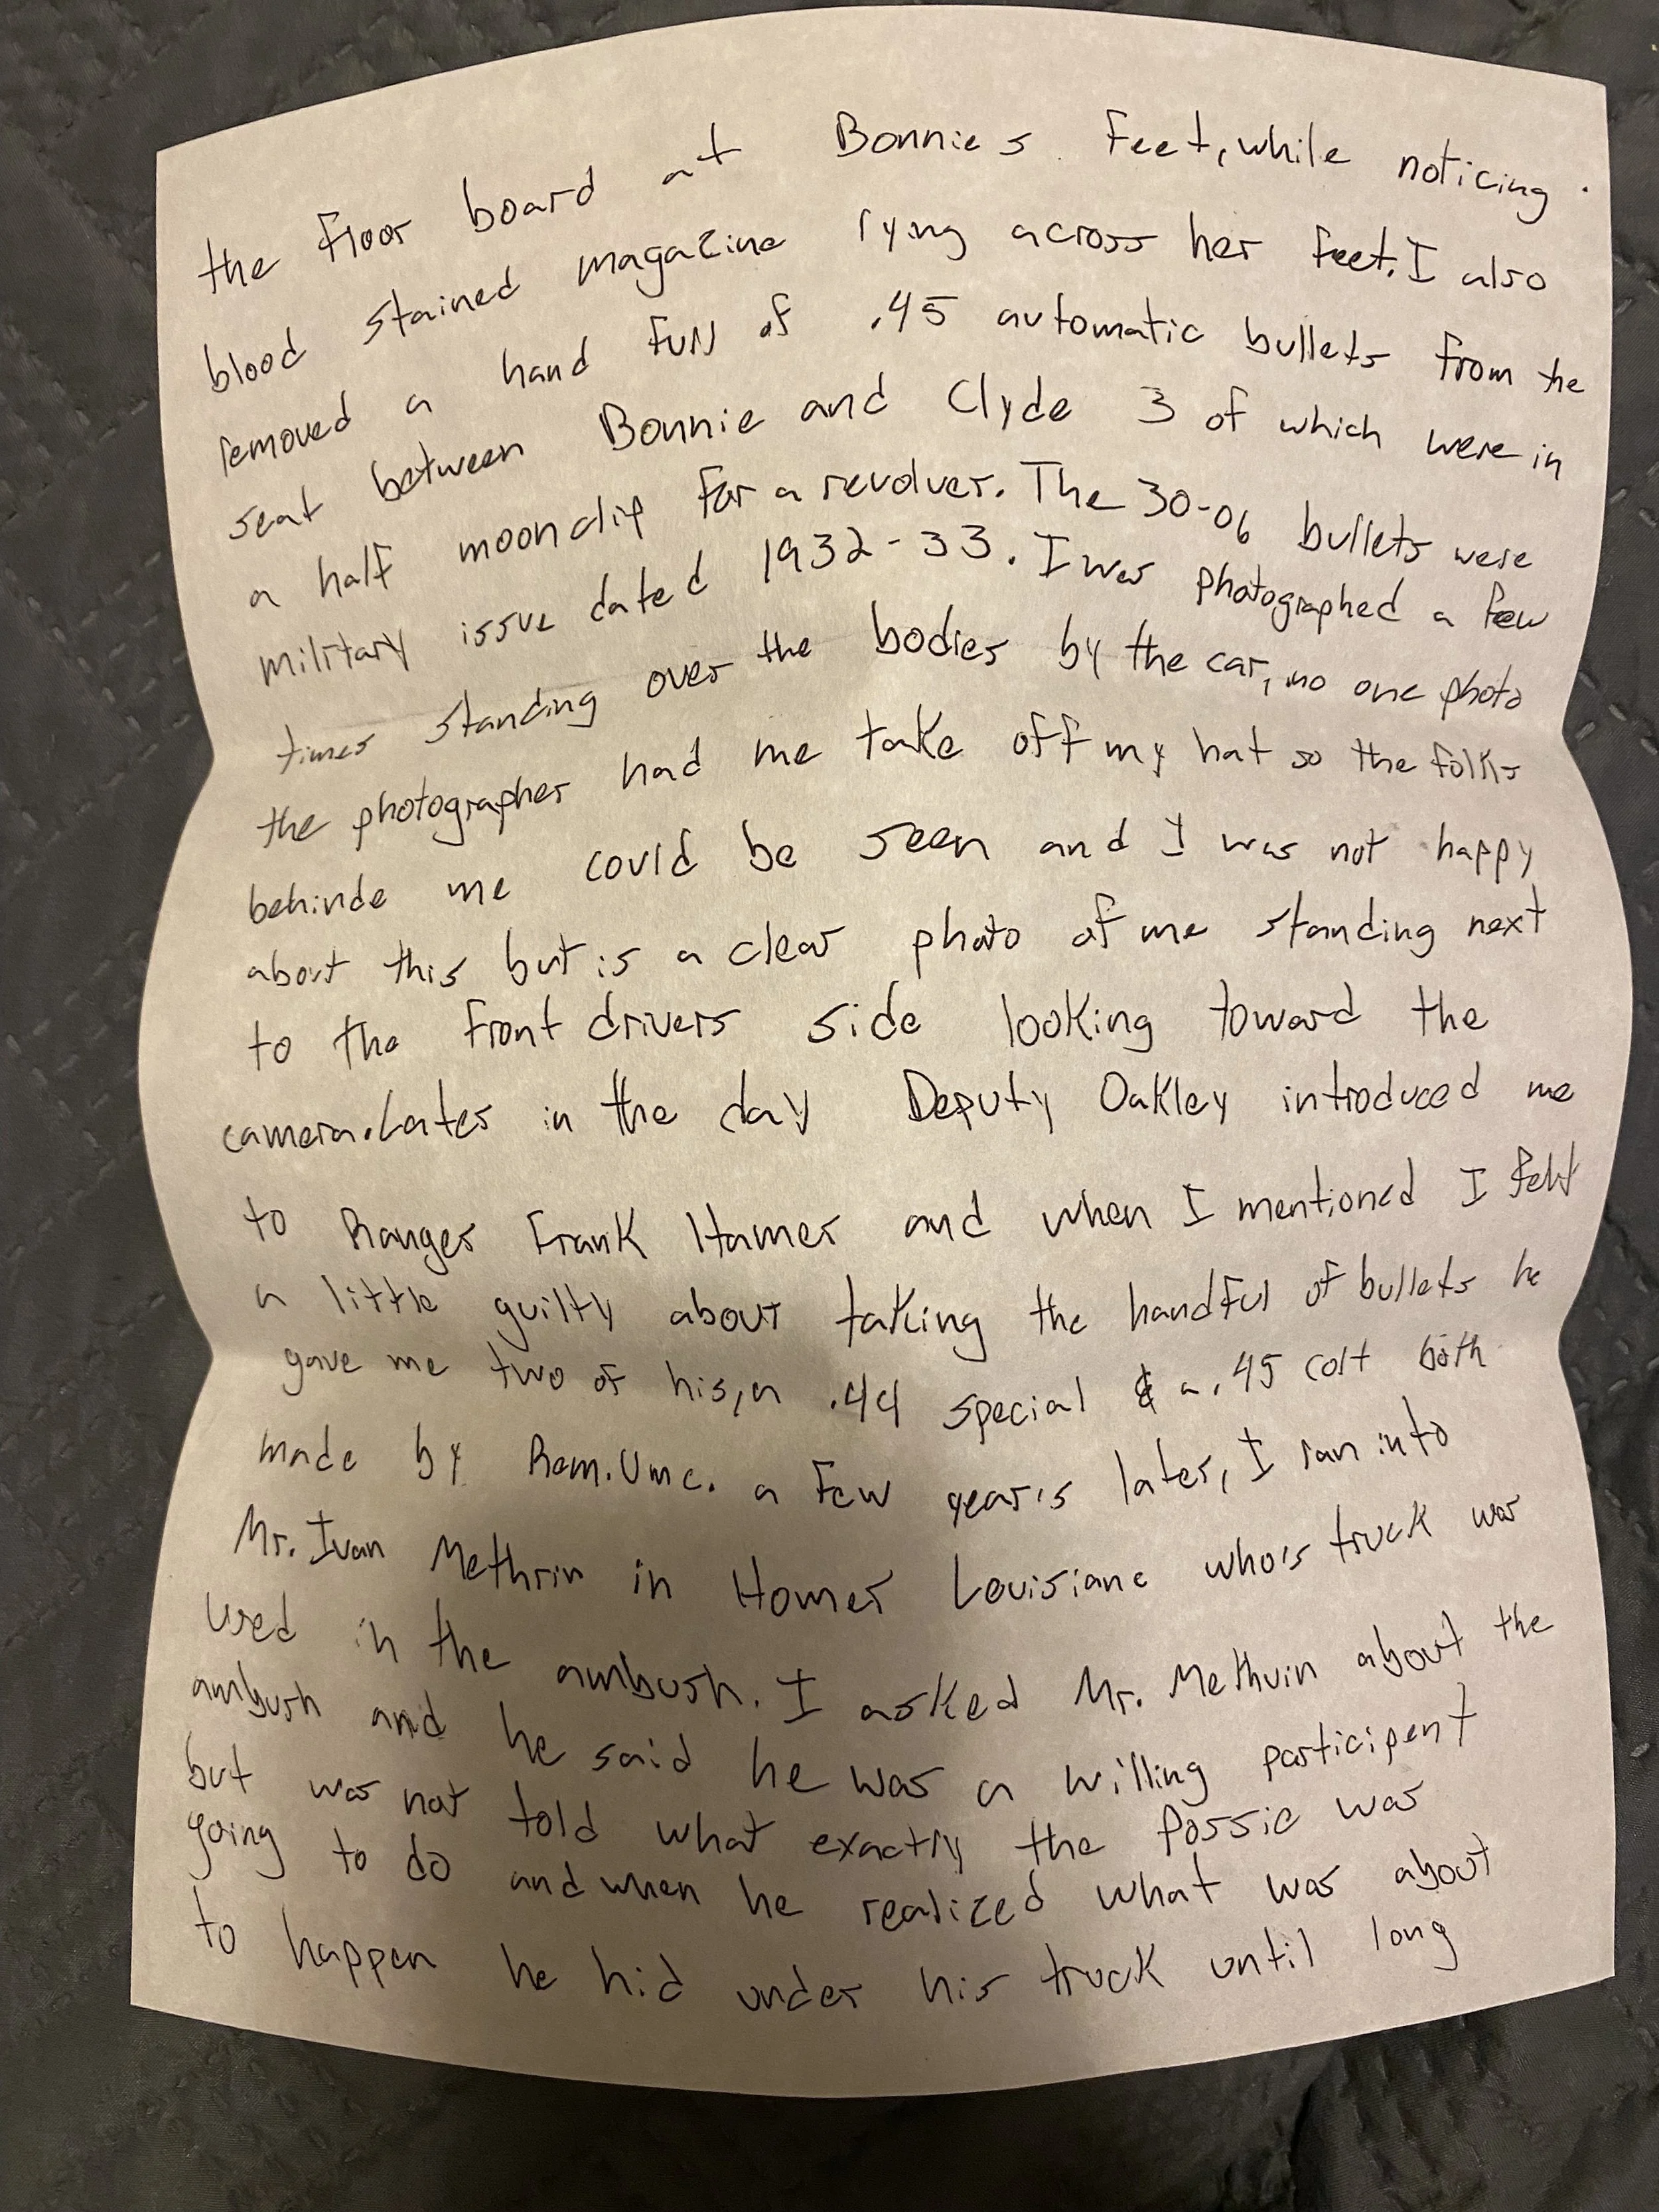 the floor board at Bonnies feet, while noticing
blood stained magazine lying across her feet. I also
removed a hand full of .45 automatic bullets from the
seat between Bonnie and Clyde 3 of which were in
a half moon clip for a revolver. The 30-06 bullets were
military issue dated 1932-33. I was photographed a few
times standing over the bodies by the car, no one photo
the photographer had me take off my hat so the folks
behinde me could be seen and I was not happy
about this but is a clear photo of me standing next
to the front drivers side looking toward the
camera. Later in the day Deputy Oakley introduced me
to Ranger Frank Hamer and when I mentioned I felt
a little guilty about taking the handful of bullets he
gave me two of his, a .44 special & a .45 colt both
made by Rem. Umc. a few year's later, I ran into
Mr. Ivan Methrin in Homer Louisiane who's truck was
used in the ambush. I asked Mr. Methvin about the
ambush and he said he was a willing participent
but was not told what exactly the Possie was
going to do and when he realized what was about
to happen he hid under his truck until long